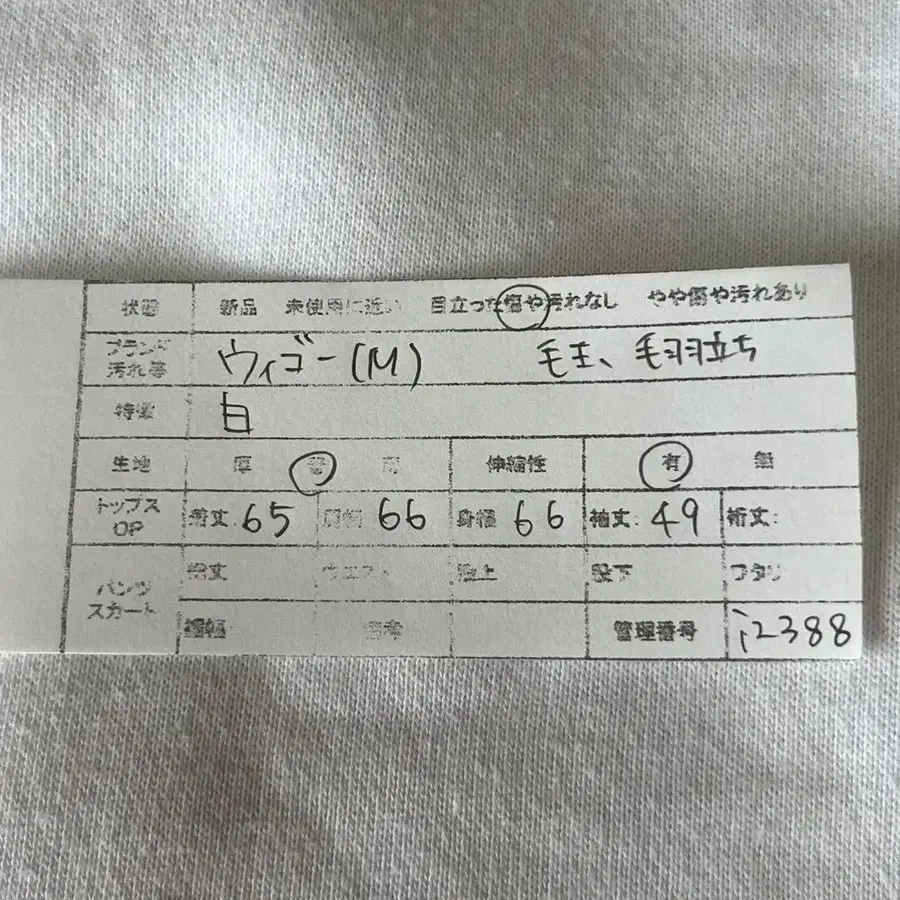 状態 新品 未使用に近い 目立った傷や汚れなし やや傷や汚れあり
ブランド 汚れ等 ウィゴー(M) 毛玉、毛羽立ち
特徴 白
生地 厚 普 薄 伸縮性 有 無
トップス OP 着丈:65 肩幅 66 身幅 66 袖丈:49 裄丈:
パンツ スカート 総丈 ウエスト 股上 股下 ワタリ
裾幅: 備考 管理番号 i2388